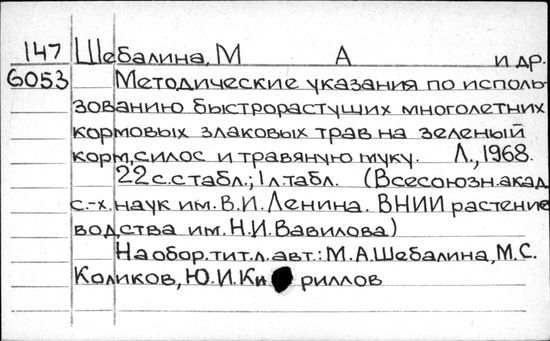 147 Шебалина, М А и др.
6053 Методические указания по исполь-
зованию быстрорастущих многолетних
кормовых злаковых трав на зеленый
корм, силос и травяную муку. Л., 1968.
22 с. с табл.; 1 л. табл. (Всесоюзн. акад.
с.-х. наук им. В.И. Ленина. ВНИИ растение
водства им. Н.И. Вавилова)
На обор. тит. л. авт.: М.А. Шебалина, М.С.
Коликов, Ю.И. Ки риллов